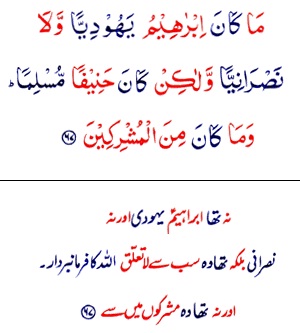 مَا كَانَ اِبْرٰهِيْمُ يَهُوْدِيًّا وَّلَا
نَصْرَانِيًّا وَّلٰكِنْ كَانَ حَنِيْفًا مُّسْلِمًا ؕ
وَمَا كَانَ مِنَ الْمُشْرِكِيْنَ ﴿۶۷﴾
نہ تھا ابراہیمؑ یہودی اور نہ
نصرانی بلکہ تھا وہ سب سے لا تعلّق اللہ کا فرمانبردار۔
اور نہ تھا وہ مشرکوں میں سے ﴿۶۷﴾